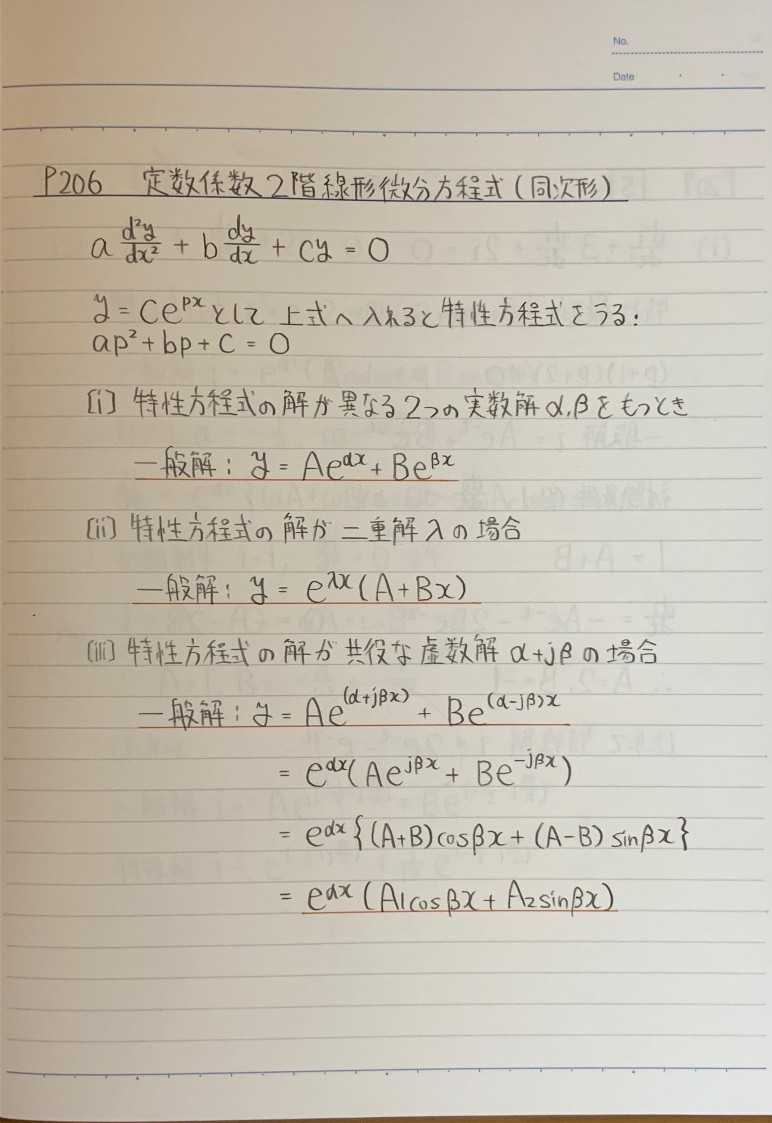 No.
Date
P206 定数係数2階線形微分方程式(同次形)
a d²y/dx² + b dy/dx + cy = 0
y = Ce^{px} として 上式へ入れると特性方程式をうる:
ap² + bp + c = 0
[i] 特性方程式の解が異なる2つの実数解α,βをもつとき
一般解: y = Ae^{αx} + Be^{βx}
[ii] 特性方程式の解が二重解λの場合
一般解: y = e^{λx}(A+Bx)
[iii] 特性方程式の解が共役な虚数解 α+jβ の場合
一般解: y = Ae^{(α+jβx)} + Be^{(α-jβ)x}
= e^{αx}(Ae^{jβx} + Be^{-jβx})
= e^{αx}{(A+B)cosβx + (A-B) sinβx}
= e^{αx}(A1cosβx + A2sinβx)